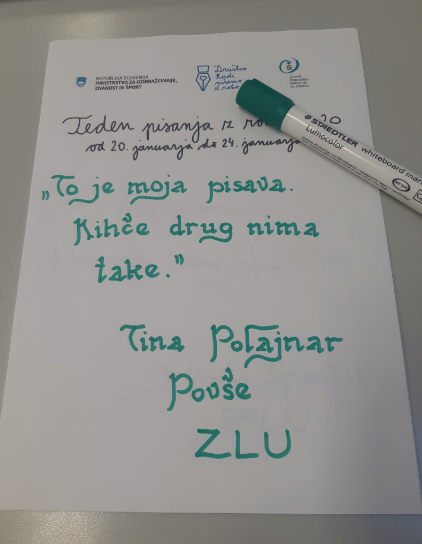 REPUBLIKA SLOVENIJA
MINISTRSTVO ZA IZOBRAŽEVANJE,
ZNANOST IN ŠPORT
Društvo
Radi
pišemo
z roko
Teden pisanja z 20
od 20. januarja do 24. januarja
STAEDTLER whiteboard
Lumocolor
„To je moja pisava.
Kihče drug nima
take.”
Tina Polajnar
Povše
ZLU